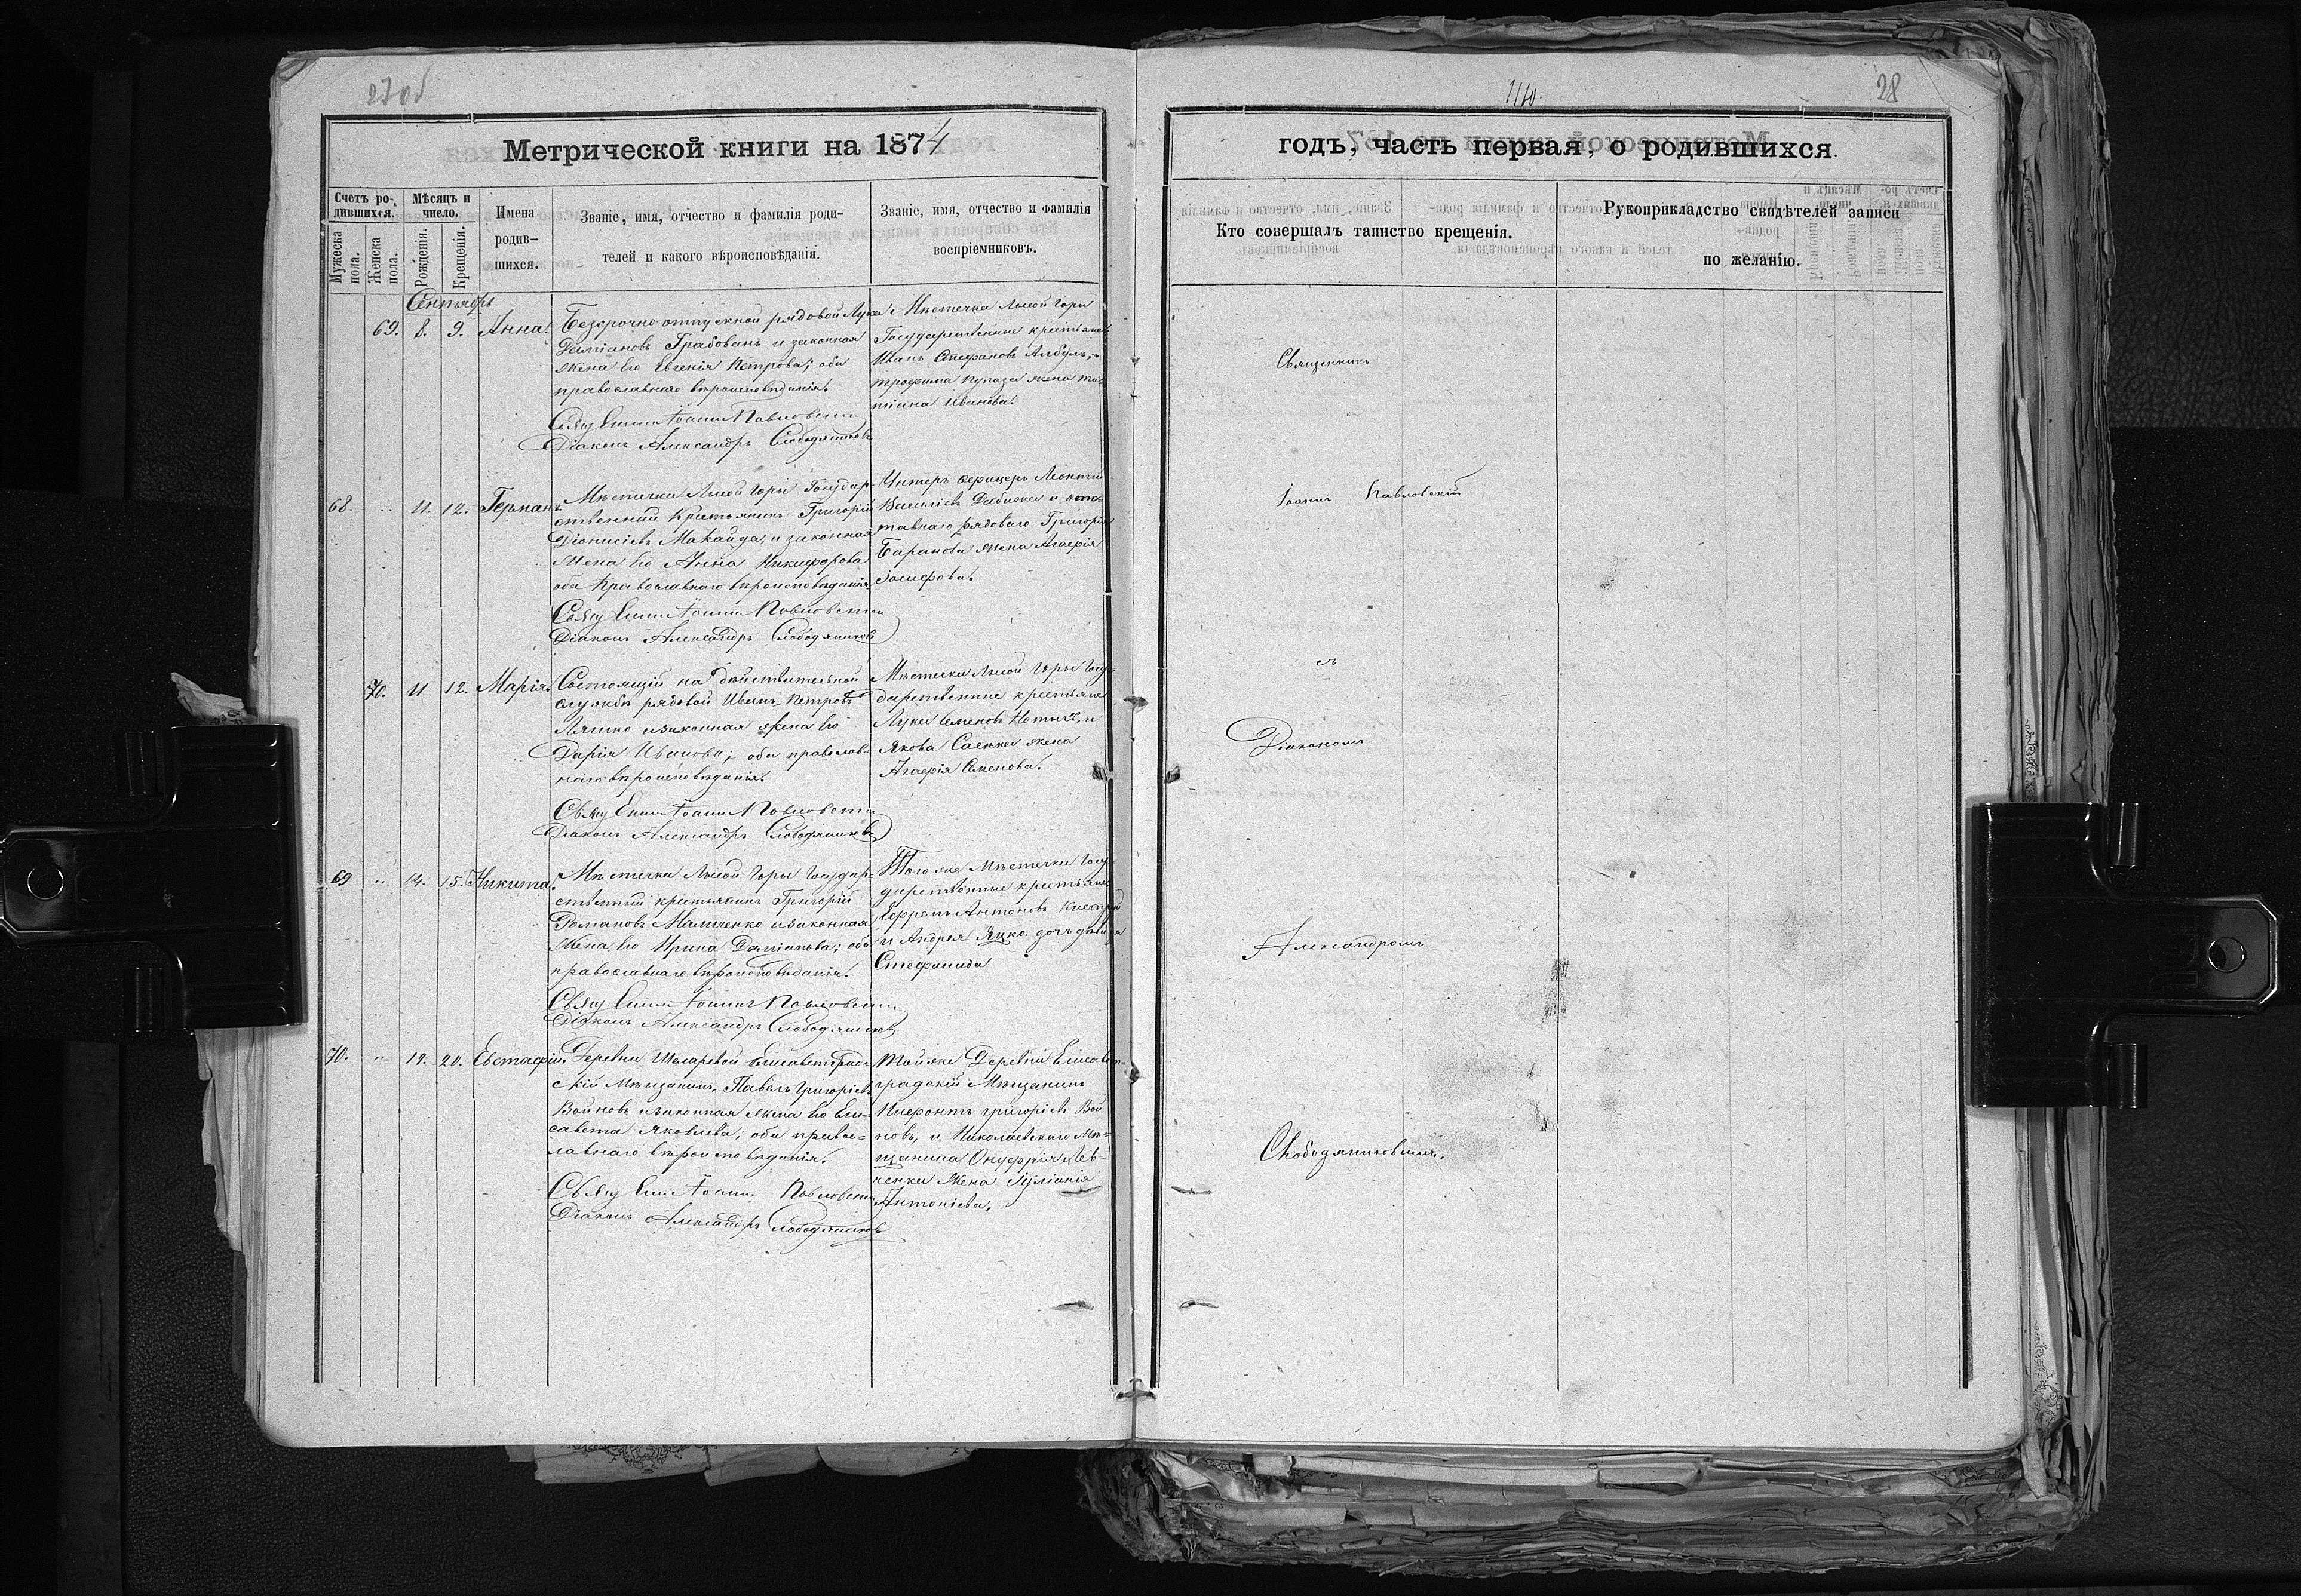 27об
Метрической книги на 1874
Счетъ ро-
дившихся.
Мѣсяцъ и
число.
Мужеска
пола.
Женска
пола.
Рожденія.
Крещенія.
Имена
родив-
шихся.
Званіе, имя, отчество и фамилія роди-
телей и какого вѣроисповѣданія.
Званіе, имя, отчество и фамилія
воспріемниковъ.
Сентябрь
69. 8. 9. Анна.
Безсрочно отпускной рядовой Лука
Даміановъ Грабованъ и законная
жена его Евгенія Петрова; оба
православнаго вѣроисповѣданія.
Священникъ Іоаннъ Павловскій
Діаконъ Александръ Слободяниковъ
Мѣстечка Лысой Горы
Государственные крестьяне
Иванъ Стефановъ Албулъ, и
Трофима жена Та-
тіана Иванова.
68. " 11. 12. Германъ.
Мѣстечка Лысой Горы Государ-
ственный Крестьянинъ Григорій
Діонисіевъ Макайда, и законная
Жена его Анна Никифорова
оба Православнаго вѣроисповѣданія
Священникъ Іоаннъ Павловскій
Діаконъ Александръ Слободяниковъ
Унтеръ Офицеръ Леонтій
Василіевъ и отс-
тавнаго рядоваго Григорія
Баранова жена Агафія
Іосифова.
70. 11 12. Марія.
Состоящій на дѣйствительной
службѣ рядовой Иванъ Петровъ
Ляшко и законная жена его
Дарія Иванова; оба православ-
наго вѣроисповѣданія.
Священникъ Іоаннъ Павловскій
Діаконъ Александръ Слободяниковъ
Мѣстечка Лысой Горы Госу-
дарственные крестьяне
Лука Семеновъ и
Якова Саенка жена
Агафія Семенова.
69 " 14. 15. Никита.
Мѣстечка Лысой Горы Государ-
ственный крестьянинъ Григорій
Романовъ Мальченко и законная
Жена его Ирина Даміанова; оба
православнаго вѣроисповѣданія.
Священникъ Іоаннъ Павловскій
Діаконъ Александръ Слободяниковъ
Того же Мѣстечка Госу-
дарственные крестьяне
Ефремъ Антоновъ
и Андрея Яцко дочь дѣвица
Стефанида
70. " 19. 20. Евстафій.
Деревни Шмаревой Елисаветград-
скій Мѣщанинъ Павелъ Григоріевъ
Войновъ и законная жена его Ели-
савета Яковлева; оба правос-
лавнаго вѣроисповѣданія.
Священникъ Іоаннъ Павловскій
Діаконъ Александръ Слободяниковъ
Той же Деревни Елисавет-
градскій Мѣщанинъ
Нифонтъ Григоріевъ Вой
новъ, и Николаевскаго Мѣ-
щанина Онуфрія Лев-
ченка Жена Іуліанія
Антоніева.
28
годъ, часть первая, о родившихся.
Кто совершалъ таинство крещенія.
Рукоприкладство свидѣтелей записи
по желанію.
Священникъ
Іоаннъ Павловскій
съ
Діакономъ
Александромъ
Слободяниковымъ.